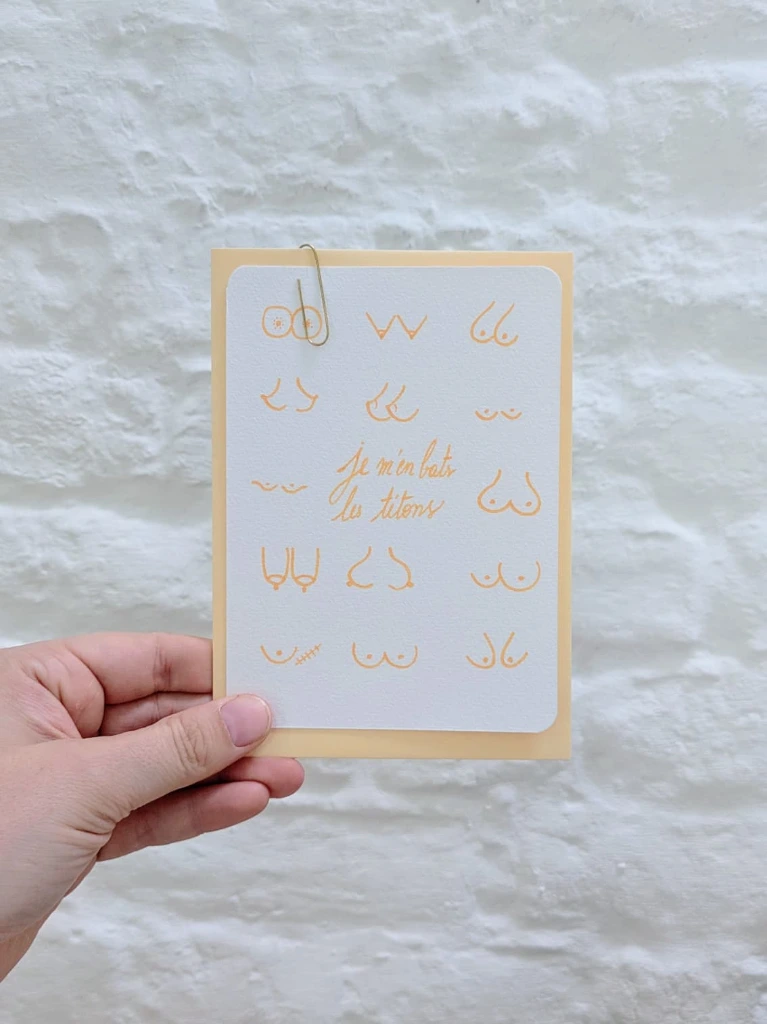 je m'en bats
les tétons